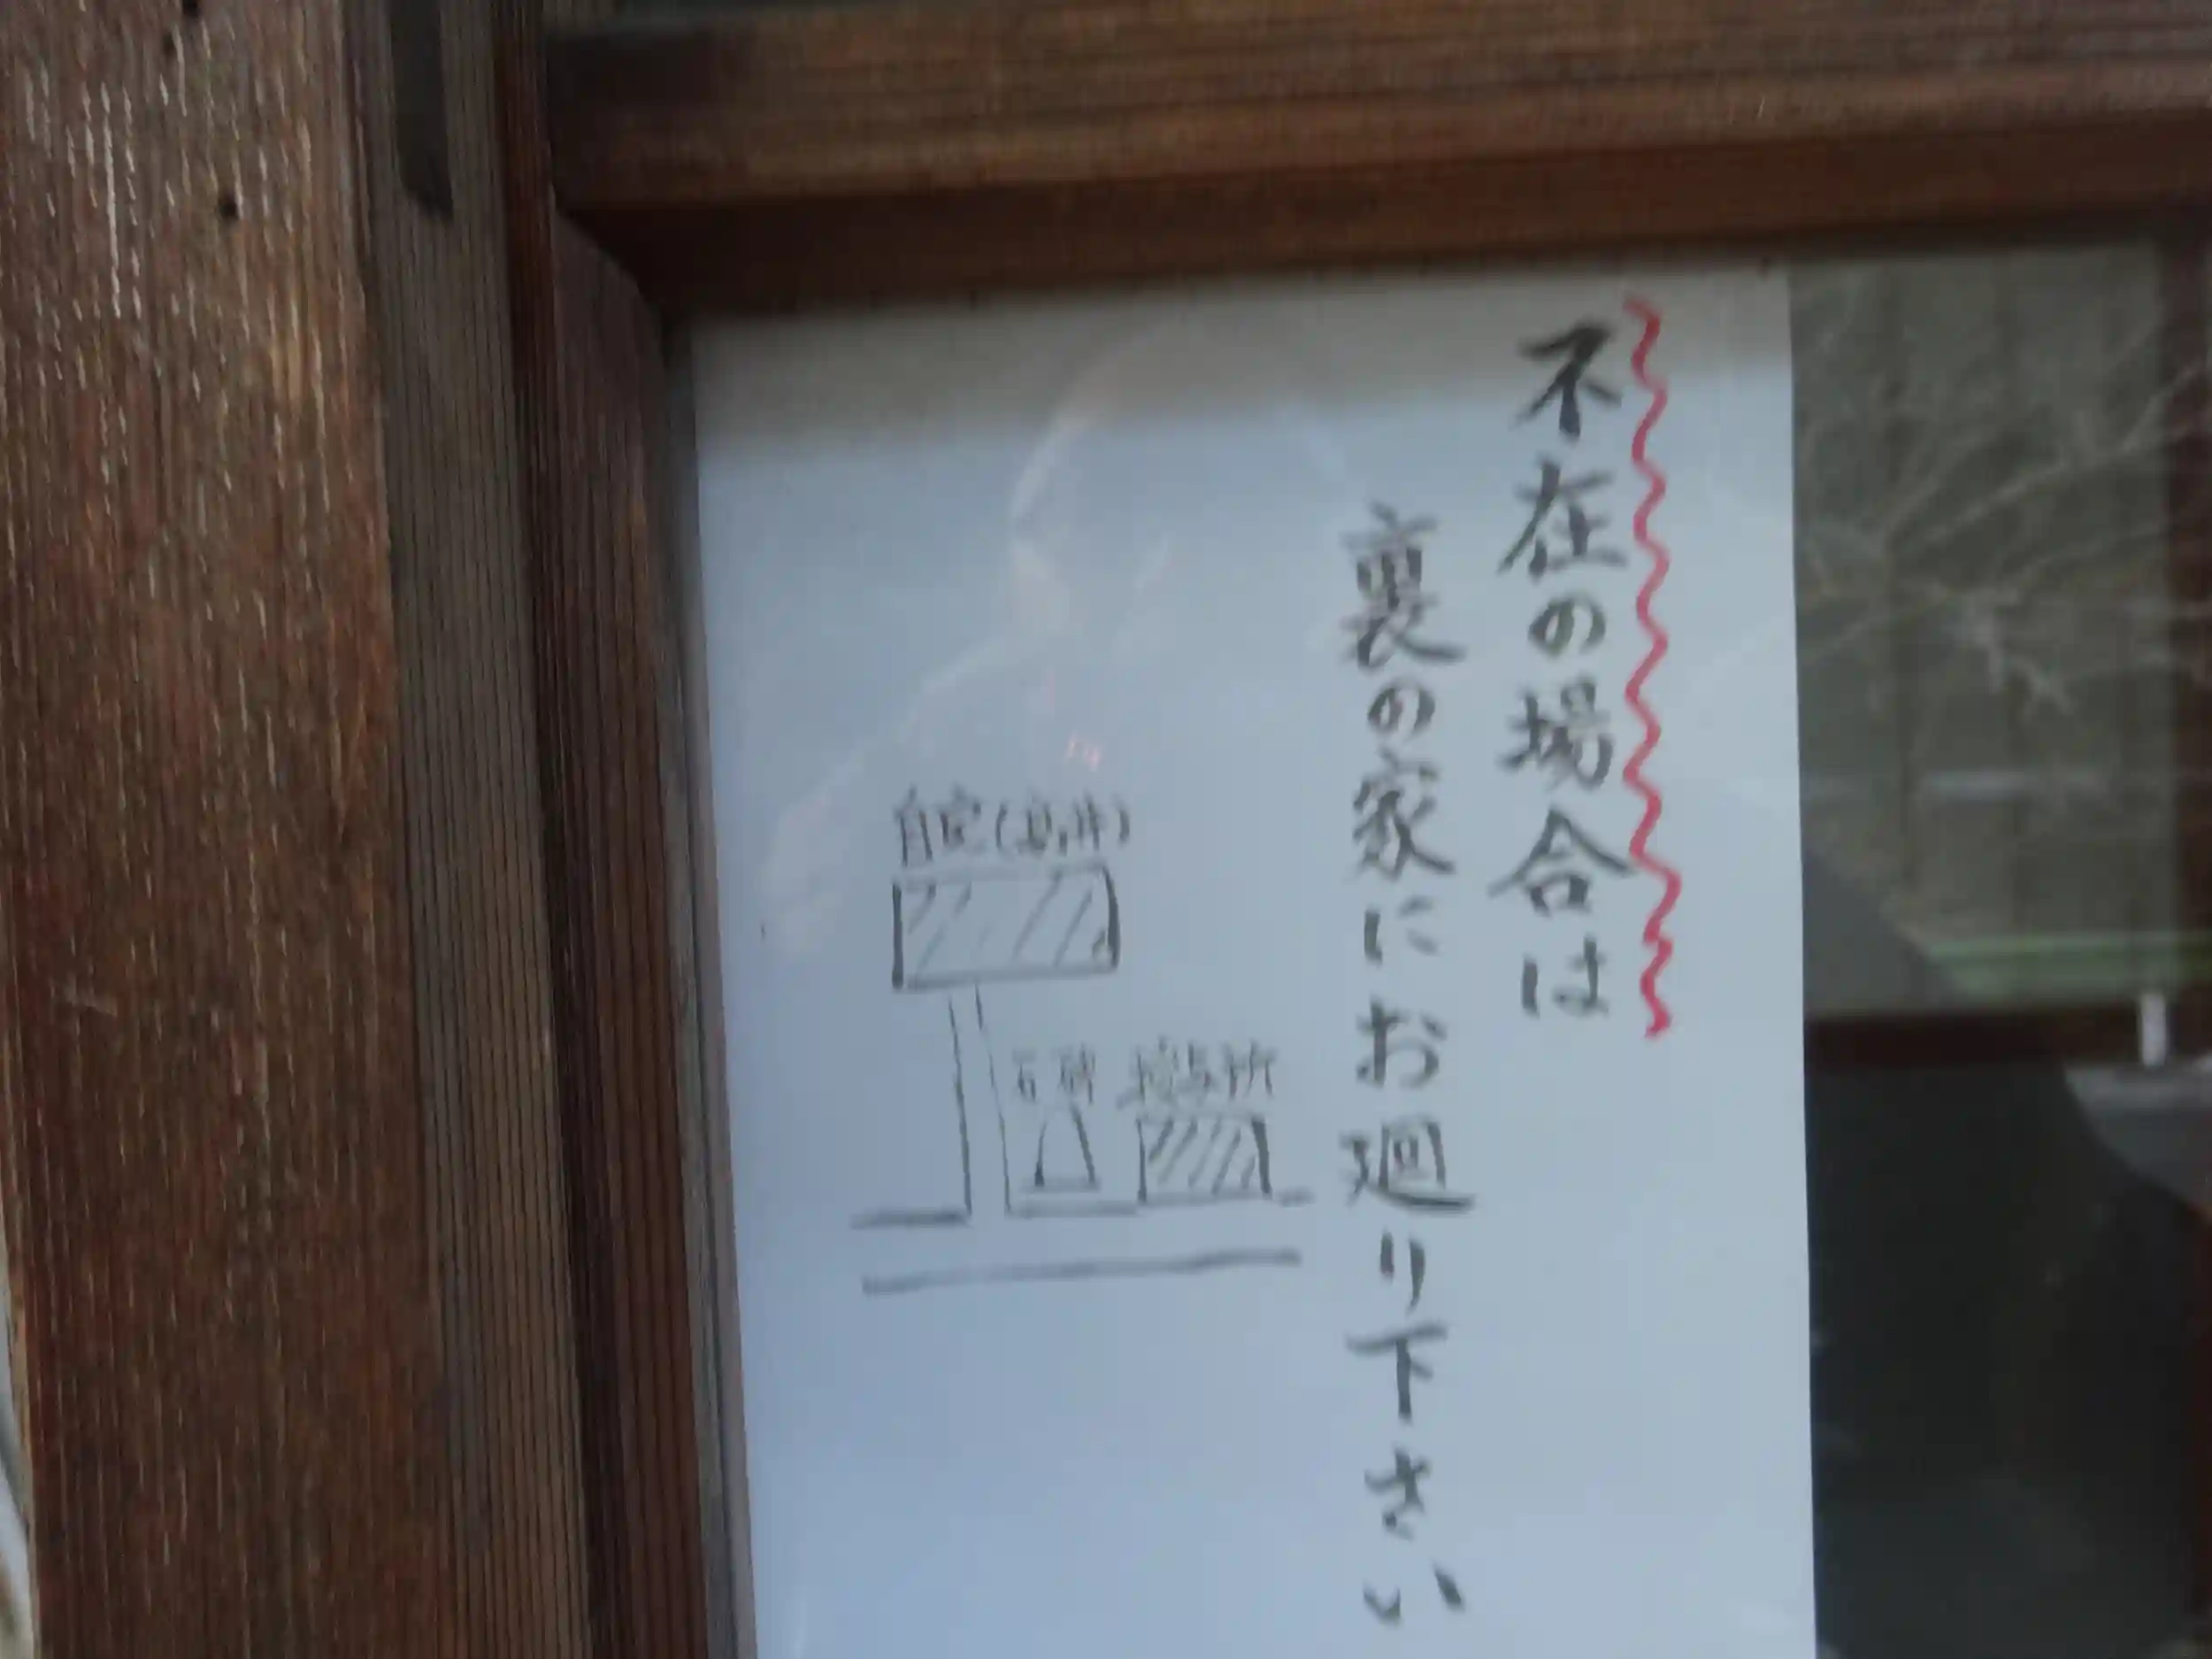 不在の場合は
裏の家にお廻り下さい
自宅
石碑
授与所